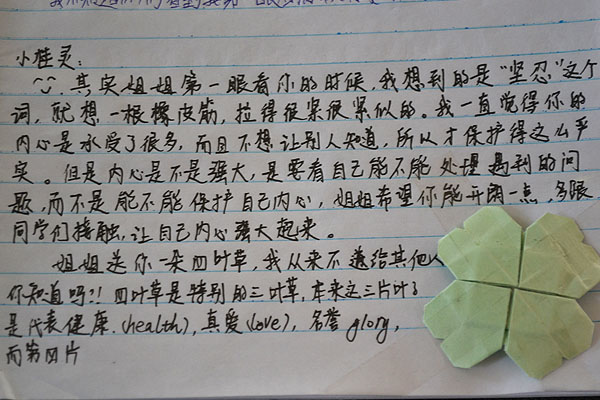 小桂灵:
其实姐姐第一眼看你的时候,我想到的是“坚忍”这个
词,就想一根橡皮筋,拉得很紧很紧似的。我一直觉得你的
内心是承受了很多,而且不想让别人知道,所以才保护得这么严
实。但是内心是不是强大,是要看自己能不能处理遇到的问
题,而不是能不能保护自己内心,姐姐希望你能开朗一点,多跟
同学们接触,让自己内心强大起来。
姐姐送你一朵四叶草,我从来不送给其他人
你知道吗?!四叶草是特别的三叶草,本来之三片叶子
是代表健康(health),真爱(love),名誉glory,
而第四片